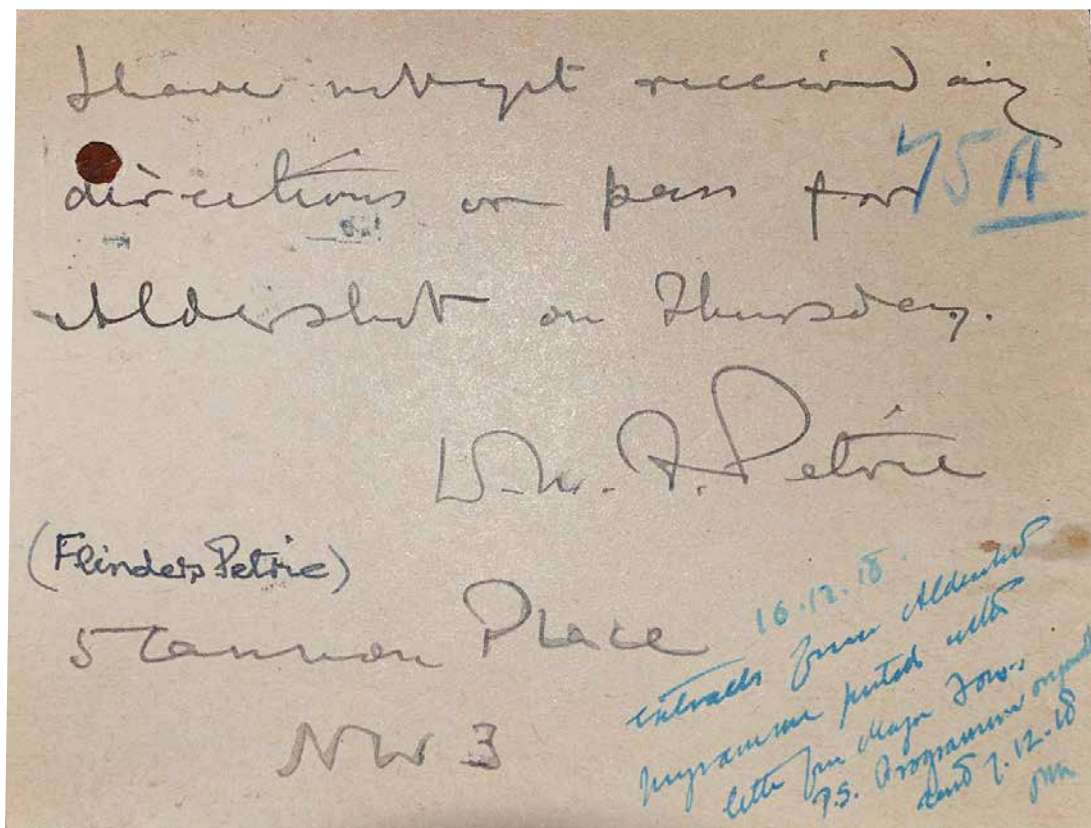 I have not yet received any
directions or pass for 75A
Aldershot on Thursday.
W. M. F. Petrie
(Flinders Petrie)
5 Cannon Place
NW3
16.12.18.
extracts from Aldershot
programme posted with
letter from Major
P.S. Programme
sent 7.12.18